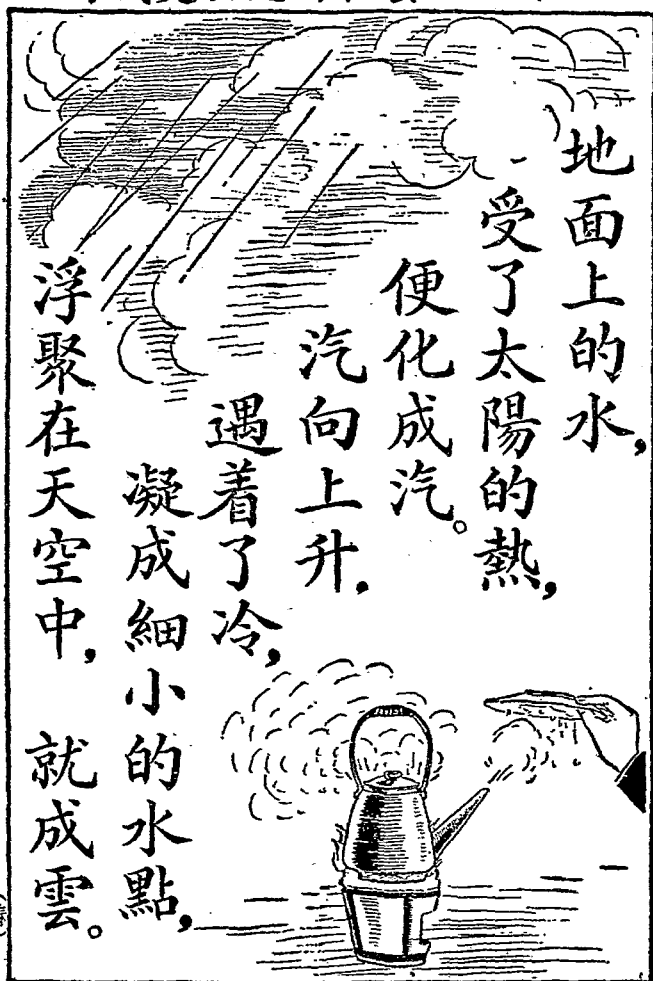 地面上的水，
受了太陽的熱，
便化成汽。
汽向上升，
遇着了冷，
凝成細小的水點，
浮聚在天空中，　就成雲。